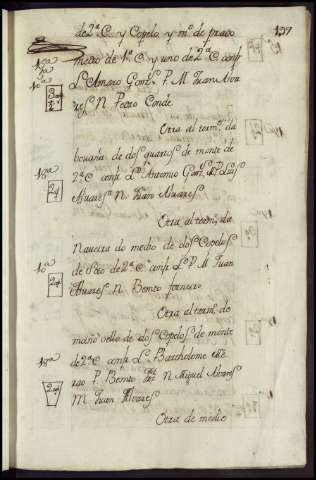 de 2ª C. y Copelo y mº de prado
197
medio de 1ª C y uno de 2ª C confr
Lº Amaro Gonz. P. M. Juan Alva
res N. Pedro Conde
Otra al term. da
bouzña de dos quartos de monte de
2ª C. confr Lº Antonio P. Luis
Alvares N. Juan Alvares
Otra al term. da
Naveira do medio de dos Copelos
de Soto de 2ª C. confr Lº P. M. Juan
Alvares N. Benito forneiro
Otra al term. do
mainovello de dos Copelos de monte
de 2ª C confr Lº Bartholome
P. Benito N. Miguel Alvares
M. Juan Alvares
Otra de medio